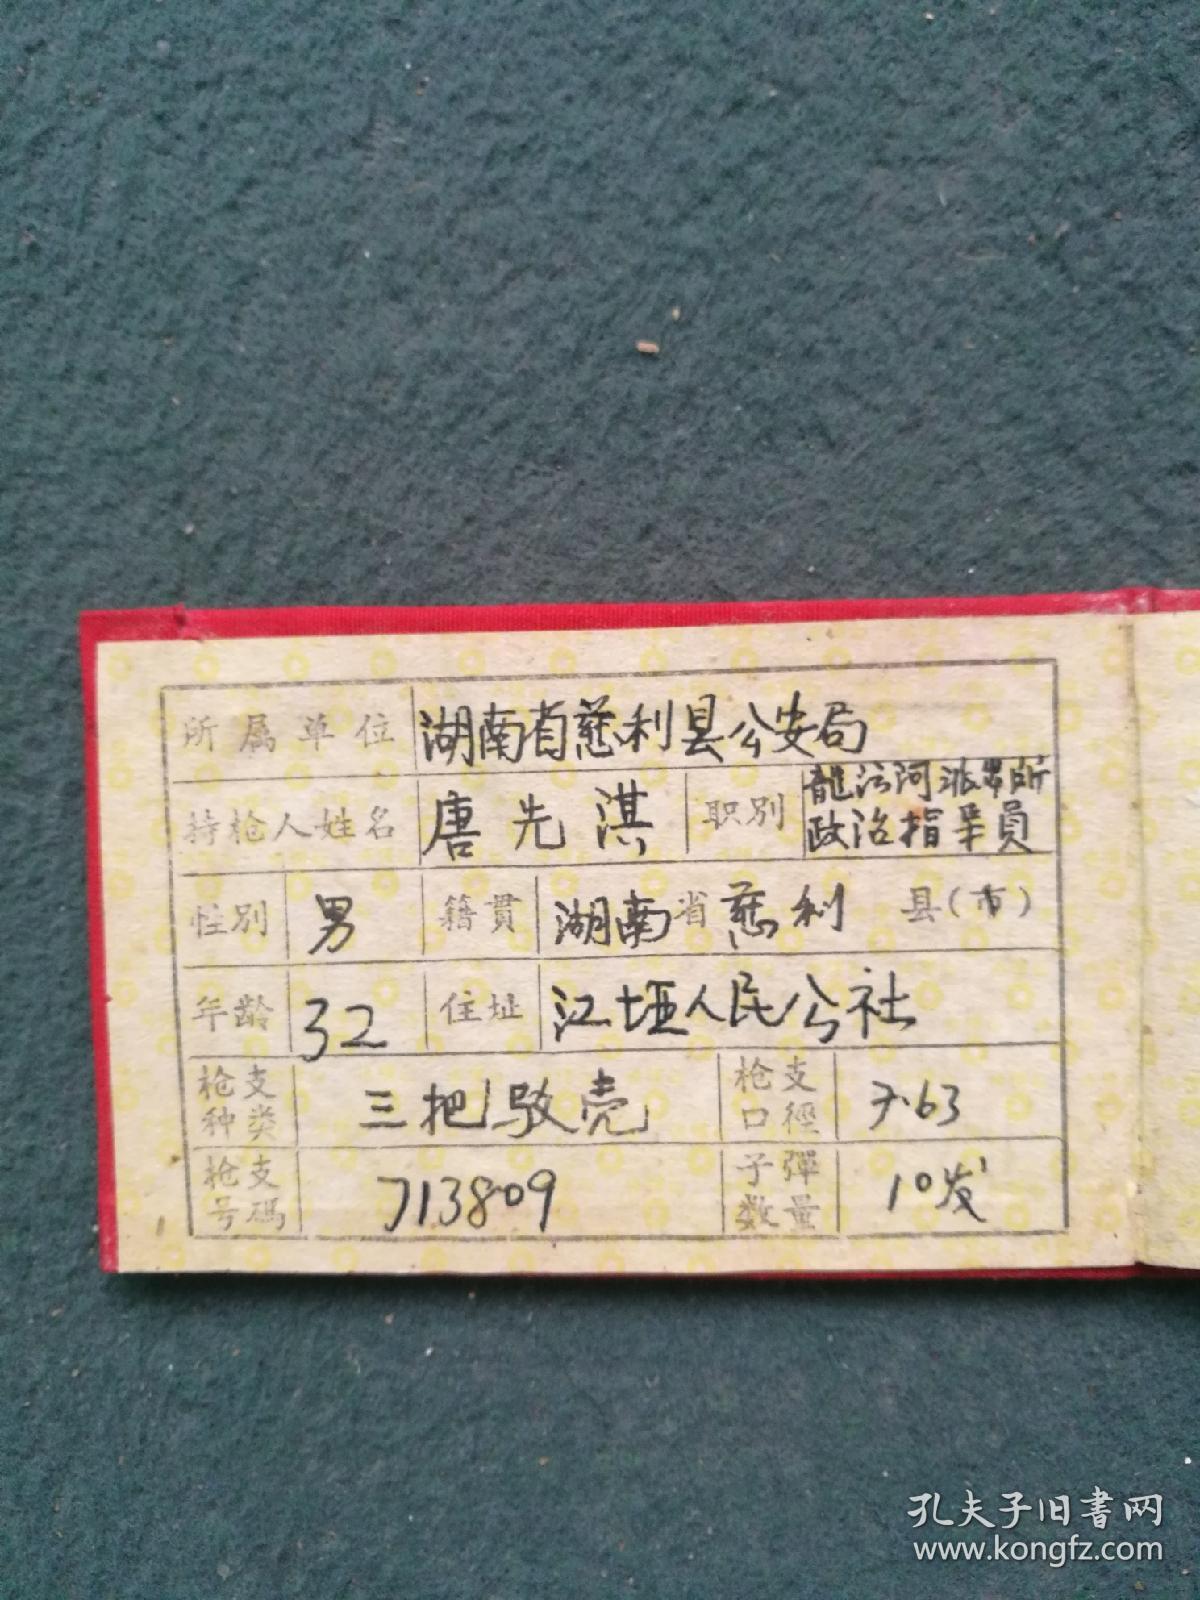 所属单位 湖南省慈利县公安局
持枪人姓名 唐先淇 职别 龍 河派出所
政治指 員
性别 男 籍貫 湖南省慈利 县(市)
年齡 32 住址 江垭人民公社
枪支种类 三把驳壳 枪支口徑 7.63
枪支号碼 713809 子彈数量 10发
孔夫子旧書网
www.kongfz.com